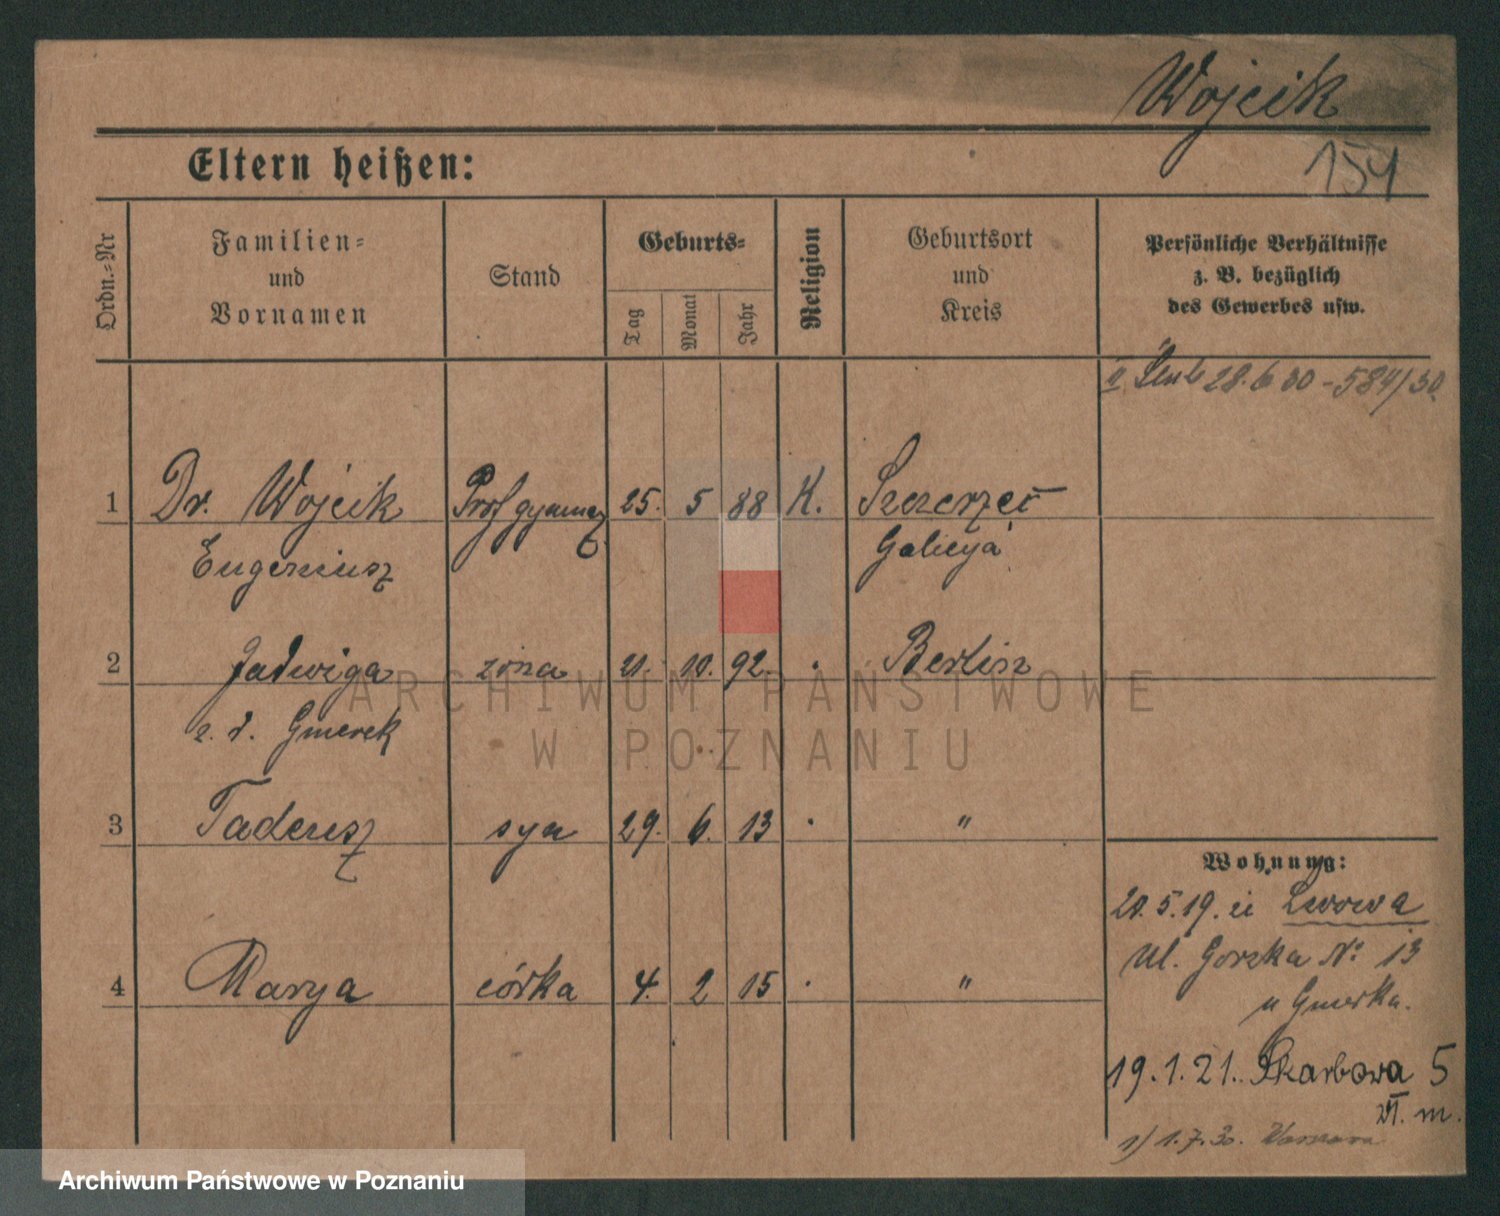 Wojcik
154
Eltern heißen:
Ordn.=Nr
Familien=
und
Vornamen
Stand
Geburts=
Tag
Monat
Jahr
Religion
Geburtsort
und
Kreis
Persönliche Verhältnisse
z. B. bezüglich
des Gewerbes usw.
II Ślub 28.6 30 - 584/30
1 Dr. Wojcik Prof gymnaz 25. 5 88 K. Szczerzec
Eugeniusz Galicya
2 Jadwiga żona 21. 10. 92 . Berlin
z. d. Gmerek
3 Tadeusz syn 29. 6. 13 . "
4 Marya córka 4. 2 15 . "
Wohnung:
20.5.19. Lwowa
Ul. Gorzka No 13
u Gmerka.
19.1.21. Skarbowa 5
VI. m.
1) 1.7.30. Warszawa
ARCHIWUM PAŃSTWOWE
W POZNANIU
Archiwum Państwowe w Poznaniu